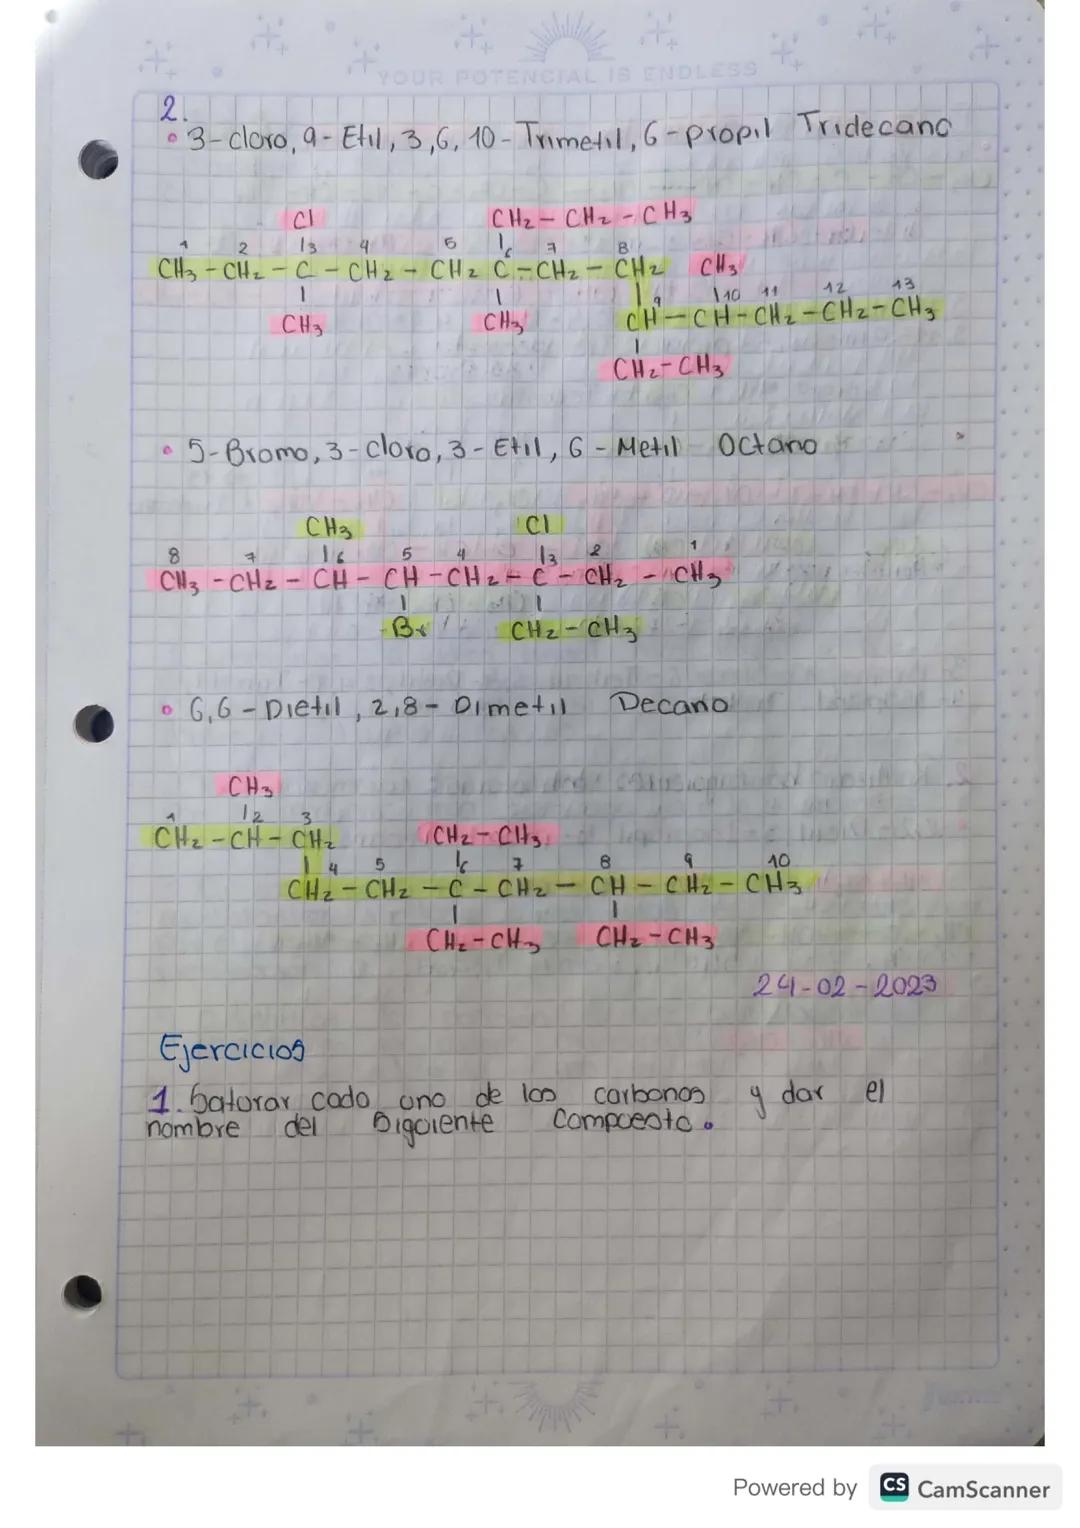 YOUR POTENCIAL IS ENDLESS
2.
• 3-cloro, 9-Etil, 3,6,10-Trimetil, 6-propil Tridecano
Cl CH₂-CH₂-CH₃
1 2 3 4 5 6 7 8
CH₃-CH₂-C-CH₂-CH₂ C-CH₂-CH₂ CH₃
9 10 11 12 13
CH₃ CH₃ CH-CH-CH₂-CH₂-CH₃
CH₂-CH₃
• 5-Bromo, 3-cloro, 3-Etil, 6-Metil Octano
CH₃ Cl
8 7 6 5 4 3 2 1
CH₃-CH₂-CH-CH-CH₂-C-CH₂-CH₃
Br CH₂-CH₃
• 6,6-Dietil, 2,8-Dimetil Decano
CH₃
1 2 3
CH₂-CH-CH₂ CH₂-CH₃
4 5 6 7 8 9 10
CH₂-CH₂-C-CH₂-CH-CH₂-CH₃
CH₂-CH₃ CH₂-CH₃
24-02-2023
Ejercicios
1. Saturar cada uno de los carbonos y dar el
nombre del Siguiente Compuesto.
Powered by CS CamScanner